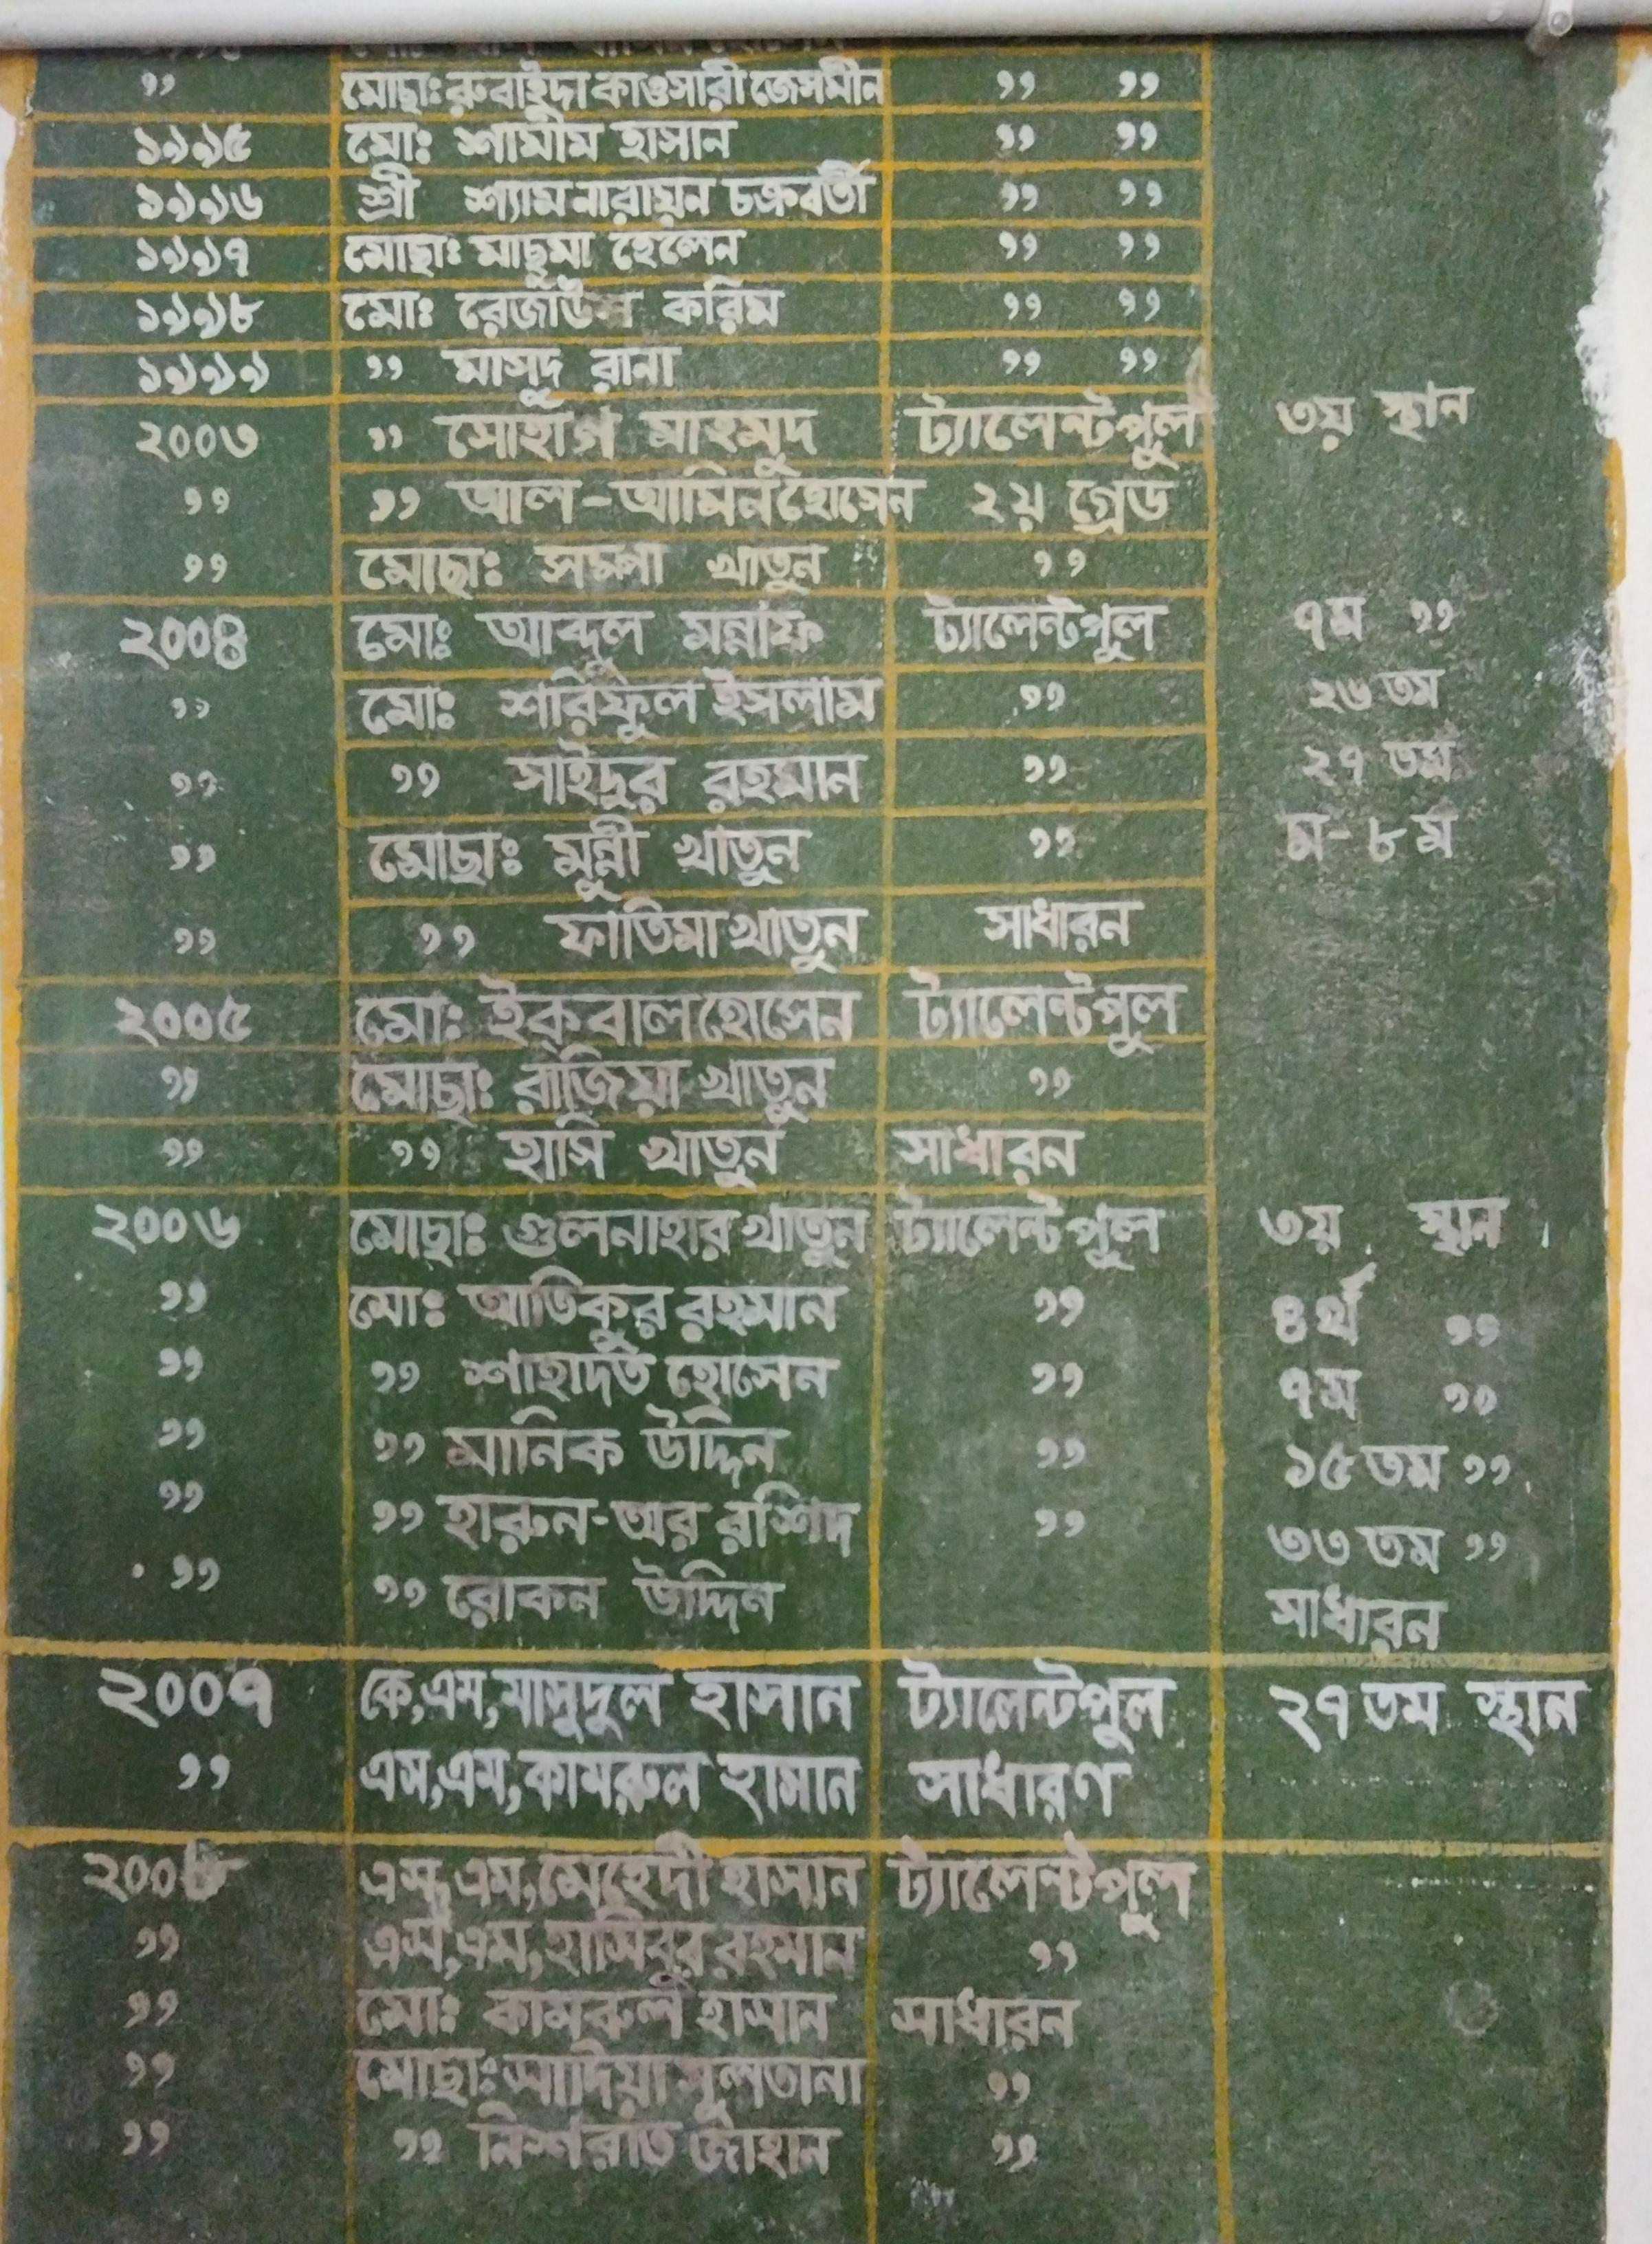 " মোছাঃ রুবাইদা কাওসারী জেসমীন " "
১৯৯৫ মোঃ শামীম হাসান " "
১৯৯৬ শ্রী শ্যামনারায়ন চক্রবর্তী " "
১৯৯৭ মোছাঃ মাছুমা হেলেন " "
১৯৯৮ মোঃ রেজাউল করিম " "
১৯৯৯ " মাসুদ রানা " "
২০০৩ " সোহাগ মাহমুদ ট্যালেন্টপুল ৩য় স্থান
" " আল-আমিন হোসেন ২য় গ্রেড
" মোছাঃ সম্পা খাতুন "
২০০৪ মোঃ আব্দুল মন্নাফ ট্যালেন্টপুল ৭ম "
" মোঃ শরিফুল ইসলাম " ২৬ তম
" " সাইদুর রহমান " ২৭ তম
" মোছাঃ মুন্নী খাতুন " ম-৮ম
" " ফাতিমা খাতুন সাধারন
২০০৫ মো: ইকবাল হোসেন ট্যালেন্টপুল
" মোছা: রাজিয়া খাতুন "
" " হাসি খাতুন সাধারন
২০০৬ মোছাঃ গুলনাহার খাতুন ট্যালেন্টপুল ৩য় স্থান
" মোঃ আতিকুর রহমান " ৪র্থ "
" " শাহাদত হোসেন " ৭ম "
" " মানিক উদ্দিন " ১৫ তম "
" " হারুন-অর রশিদ " ৩৩ তম "
" " রোকন উদ্দিন সাধারন
২০০৭ কে,এম,মাসুদুল হাসান ট্যালেন্টপুল ২৭ তম স্থান
" এস,এম,কামরুল হাসান সাধারণ
২০০৮ এস,এম,মেহেদী হাসান ট্যালেন্টপুল
" এস,এম,হাসিবুর রহমান "
" মোঃ কামরুল হাসান সাধারন
" মোছাঃ সাদিয়া সুলতানা "
" " নিশরাত জাহান "